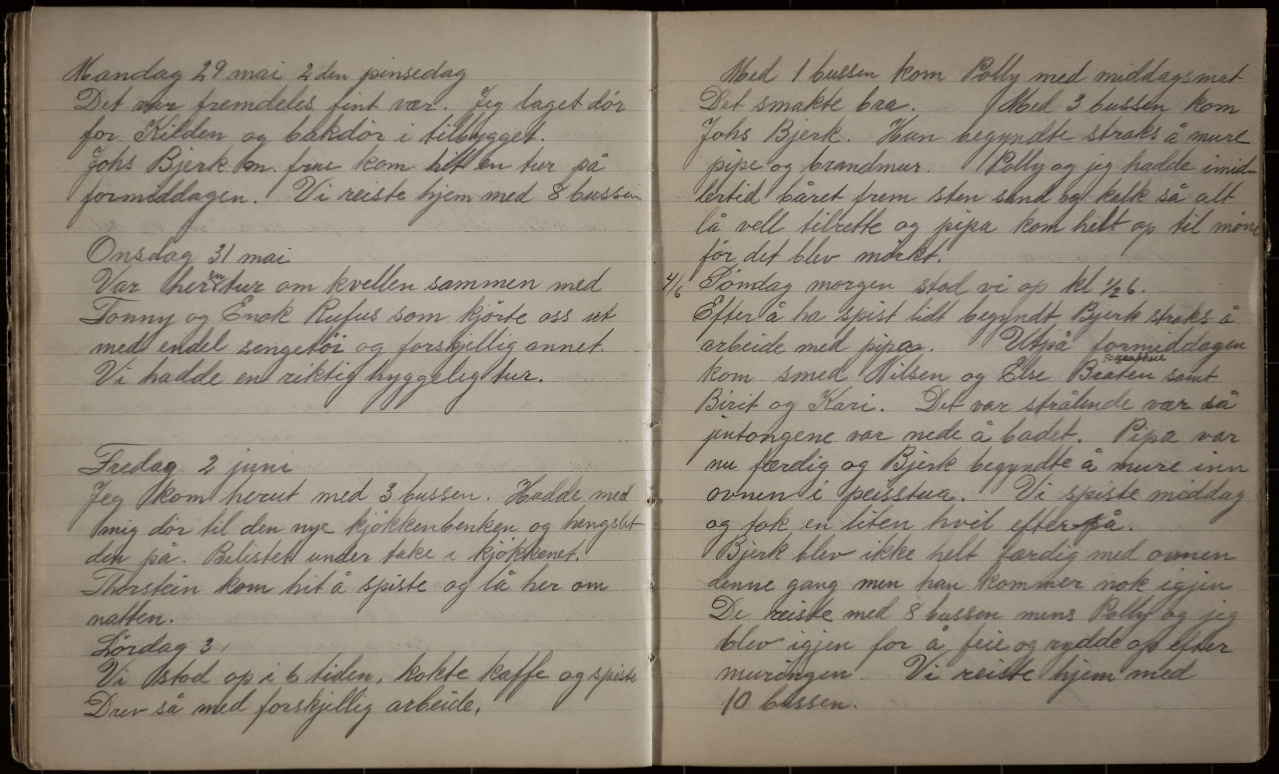 Mandag 29 mai 2 den pinsedag
Det var fremdeles fint vær. Jeg laget dör
for Kilden og bakdör i tilbygget.
Johs Bjerk m. frue kom hit en tur på
formiddagen. Vi reiste hjem med 8 bussen
Onsdag 31 mai
Var her en tur om kvellen sammen med
Tonny og Enok Rufus som kjörte oss ut
med endel sengetöi og forskjellig annet.
Vi hadde en riktig hyggelig tur.
Fredag 2 juni
Jeg kom herut med 3 bussen. Hadde med
mig dör til den nye kjökkenbenken og hengslet
den på. Belistet under take i kjökkenet.
Thorstein kom hit å spiste og lå her om
natten.
Lördag 3
Vi stod op i 6 tiden, kokte kaffe og spiste
Drev så med forskjellig arbeide.
Med 1 bussen kom Polly med middagsmat
Det smakte bra. Med 3 bussen kom
Johs Bjerk. Han begyndte straks å mure
pipe og brandmur. Polly og jeg hadde imid-
lertid båret frem sten sand og kalk så alt
lå vell tilrette og pipa kom helt op til möne
för det blev mörkt.
4/6 Söndag morgen stod vi op kl 1/2 6.
Efter å ha spist lidt begyndt Bjerk straks å
arbeide med pipa. Utpå formiddagen
kom smed Nilsen og Else Braten samt
Birit og Kari. Det var strålende vær så
jintongene var nede å badet. Pipa var
nu færdig og Bjerk begyndte å mure inn
ovnen i peisstua. Vi spiste middag
og tok en liten hvil efter på.
Bjerk blev ikke helt færdig med ovnen
denne gang men han kommer nok igjen
De reiste med 8 bussen mens Polly og jeg
blev igjen for å feie og rydde op efter
muringen. Vi reiste hjem med
10 bussen.